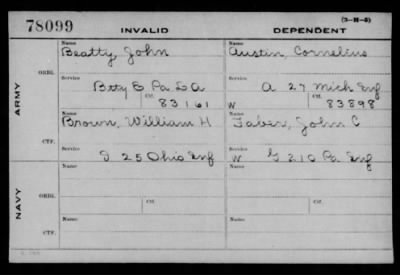 78099 INVALID DEPENDENT (3-H-5)
Name Name
Beatty, John Austin, Cornelius
ORIG. Service Service
Btty E Pa L A A 27 Mich Inf
ARMY Ctf. Ctf.
83161 W 83898
Name Name
Brown, William H Taber, John C
CTF. Service Service
I 25 Ohio Inf W G 210 Pa Inf
Name Name
ORIG. Service Service
NAVY Ctf. Ctf.
Name Name
CTF. Service Service